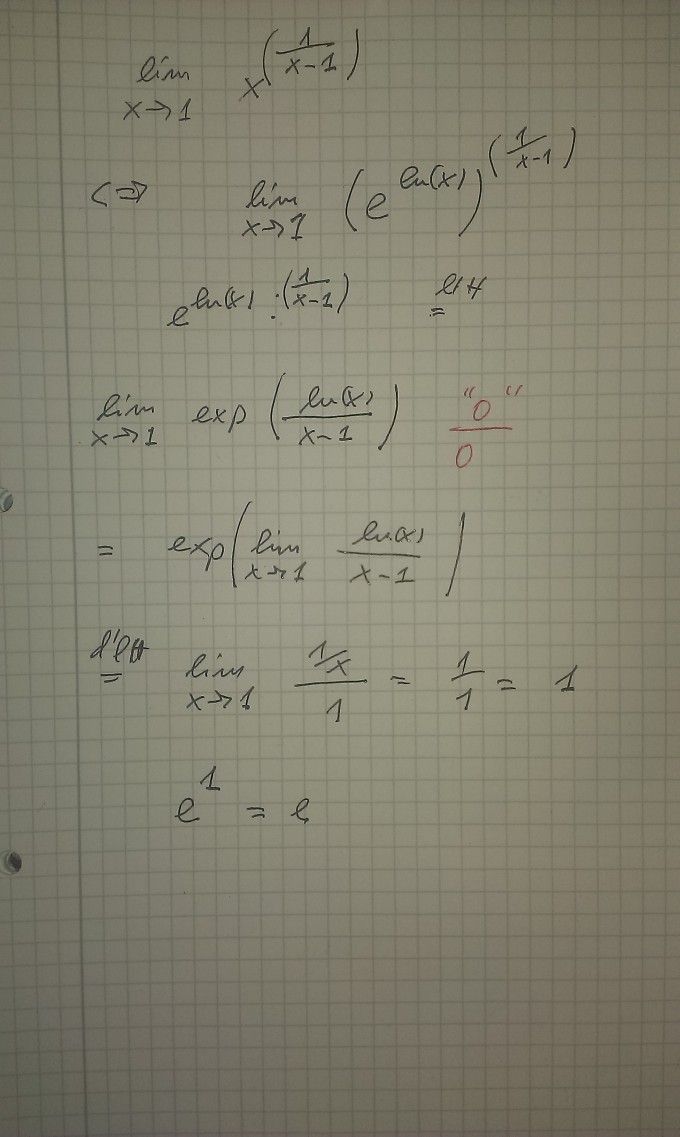 lim x→1 x^(1/(x-1))
<=> lim x→1 (e^ln(x))^(1/(x-1))
e^ln(x) : (1/(x-1)) = l'H
lim x→1 exp (ln(x)/(x-1)) "0"/0
= exp(lim x→1 ln(x)/(x-1))
d'l'H = lim x→1 (1/x)/1 = 1/1 = 1
e^1 = e